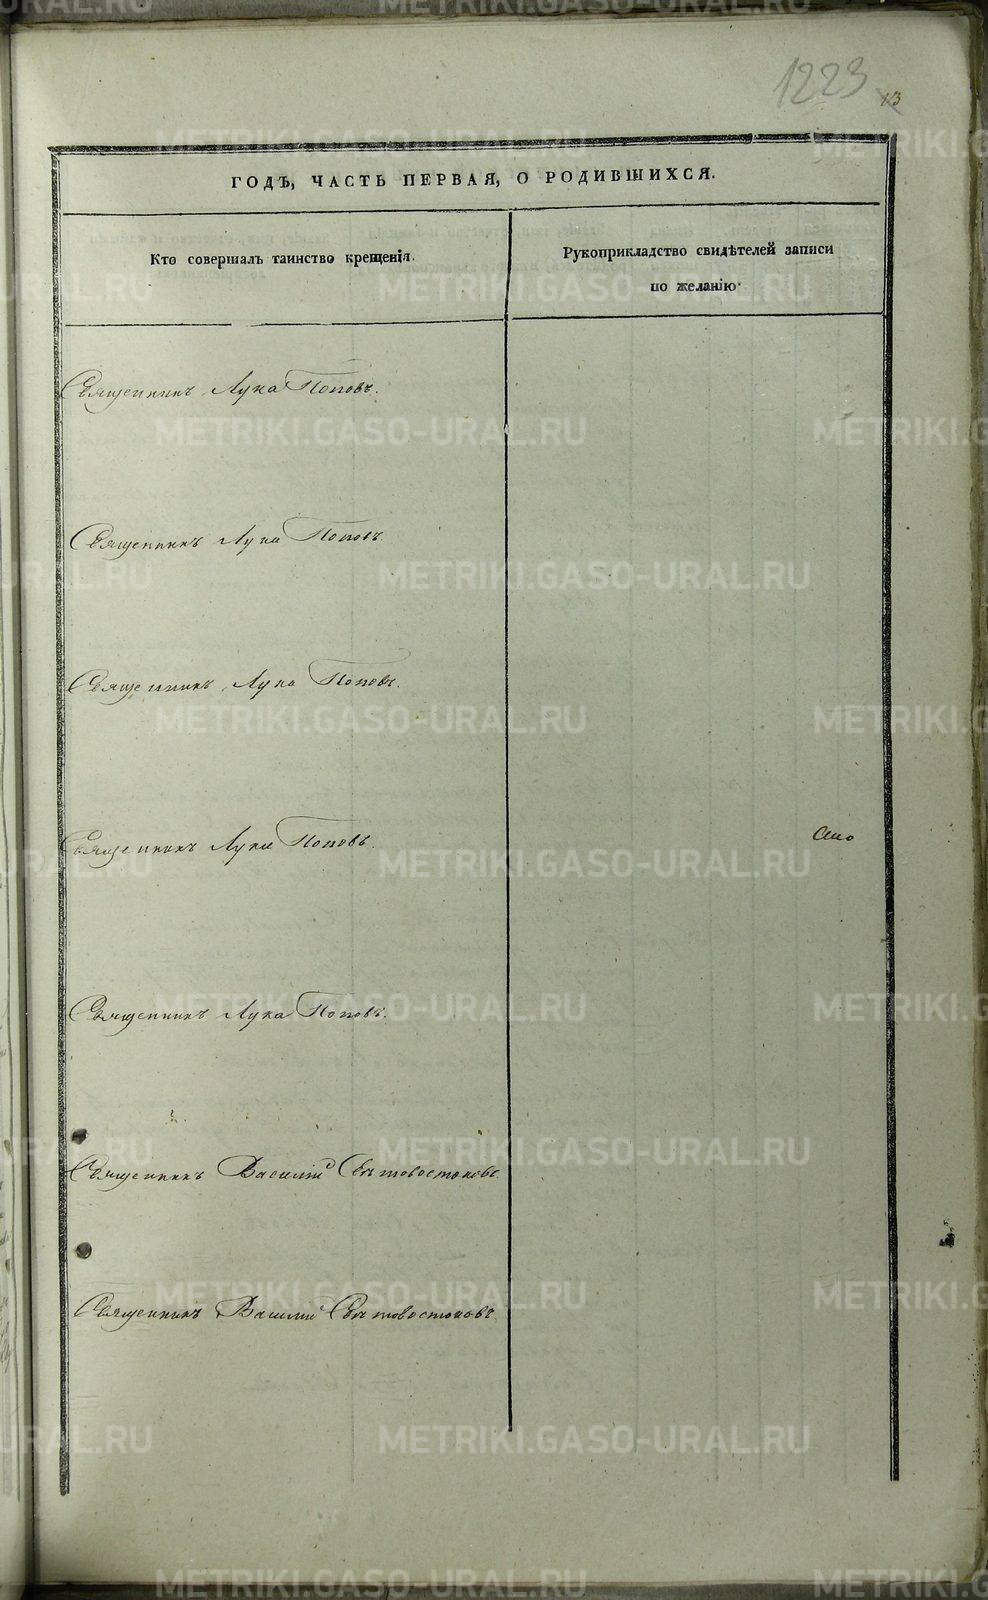 1223
13
ГОДЪ, ЧАСТЬ ПЕРВАЯ, О РОДИВШИХСЯ.
Кто совершалъ таинство крещенія.
Рукоприкладство свидѣтелей записи
по желанію.
Священникъ Лука Поповъ.
Священникъ Лука Поповъ.
Священникъ Лука Поповъ.
Священникъ Лука Поповъ.
Священникъ Лука Поповъ.
Священникъ Василій Свѣтовостоковъ.
Священникъ Василій Свѣтовостоковъ.
METRIKI.GASO-URAL.RU